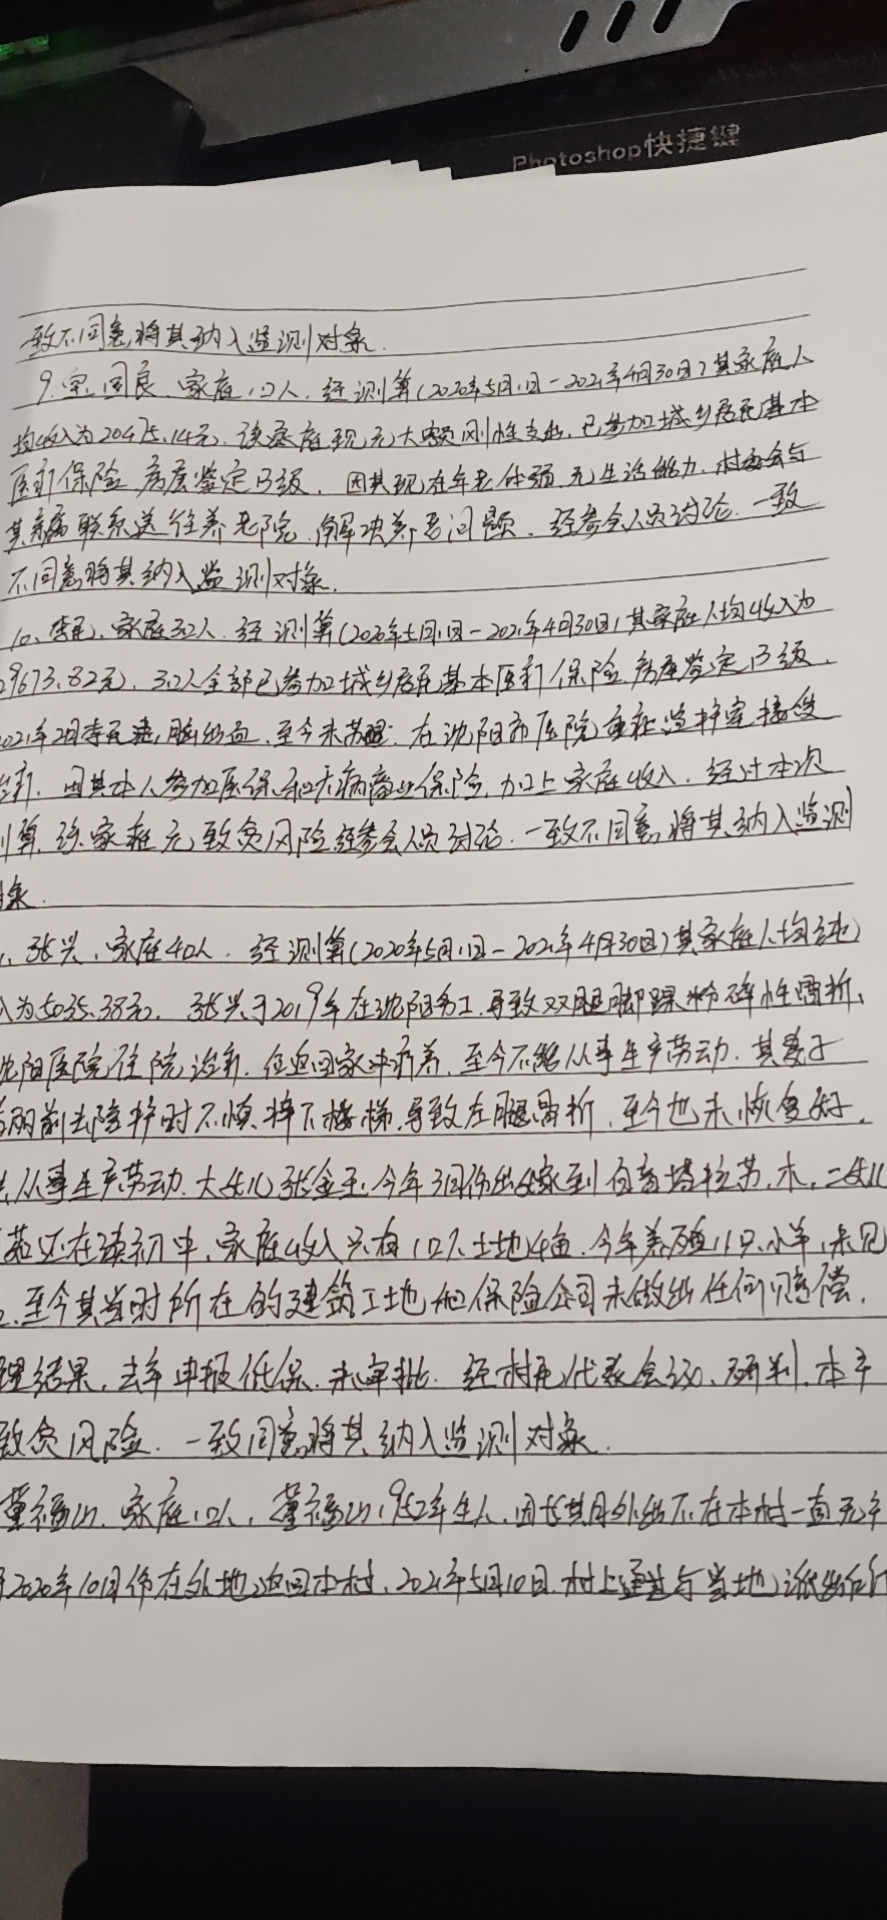 Photoshop快捷键
一致不同意将其纳入监测对象.
9.宝国良、家庭1口人.经测算(2020年5月1日-2021年4月30日)其家庭人
均收入为20475.14元.该家庭现无大额刚性支出,已参加城乡居民基本
医疗保险 房屋鉴定B级.因其现在年老体弱,无生活能力.村委会与
其联系送往养老院,解决养老问题.经参会人员讨论.一致
不同意将其纳入监测对象.
10、家庭3口人.经测算(2020年5月1日-2021年4月30日)其家庭人均收入为
9673.82元,3口人全部已参加城乡居民基本医疗保险 房屋鉴定B级.
2021年2月脑出血.至今未苏醒.在沈阳市医院重症监护室接受
治疗.因其本人参加医保和大病商业保险,加上家庭收入.经过本次
算,该家庭无致贫风险经参会人员讨论.一致不同意将其纳入监测
象.
、张兴、家庭4口人.经测算(2020年5月1日-2021年4月30日)其家庭人均纯
入为5035.38元.张兴于2019年在沈阳务工,导致双腿脚踝粉碎性骨折、
沈阳医院住院治疗.后返回家中疗养.至今不能从事生产劳动.其妻子
前去陪护时不慎摔下楼梯,导致左腿骨折.至今也未恢复好.
从事生产劳动.大女儿张金玉今年3月份出嫁到白音塔拉苏木.二女儿
还在读初中.家庭收入只有1口人土地4亩.今年养殖11只小羊,未见
.至今其当时所在的建筑工地和保险公司未做出任何赔偿.
理结果.去年申报低保.未审批.经村民代表会议、研判.本年
致贫风险.一致同意将其纳入监测对象.
董福山.家庭1口人.董福山1952年生人,因长其月外出不在本村一直无
2020年10月份在外地返回本村.2021年5月10日.村上通过与当地派出所